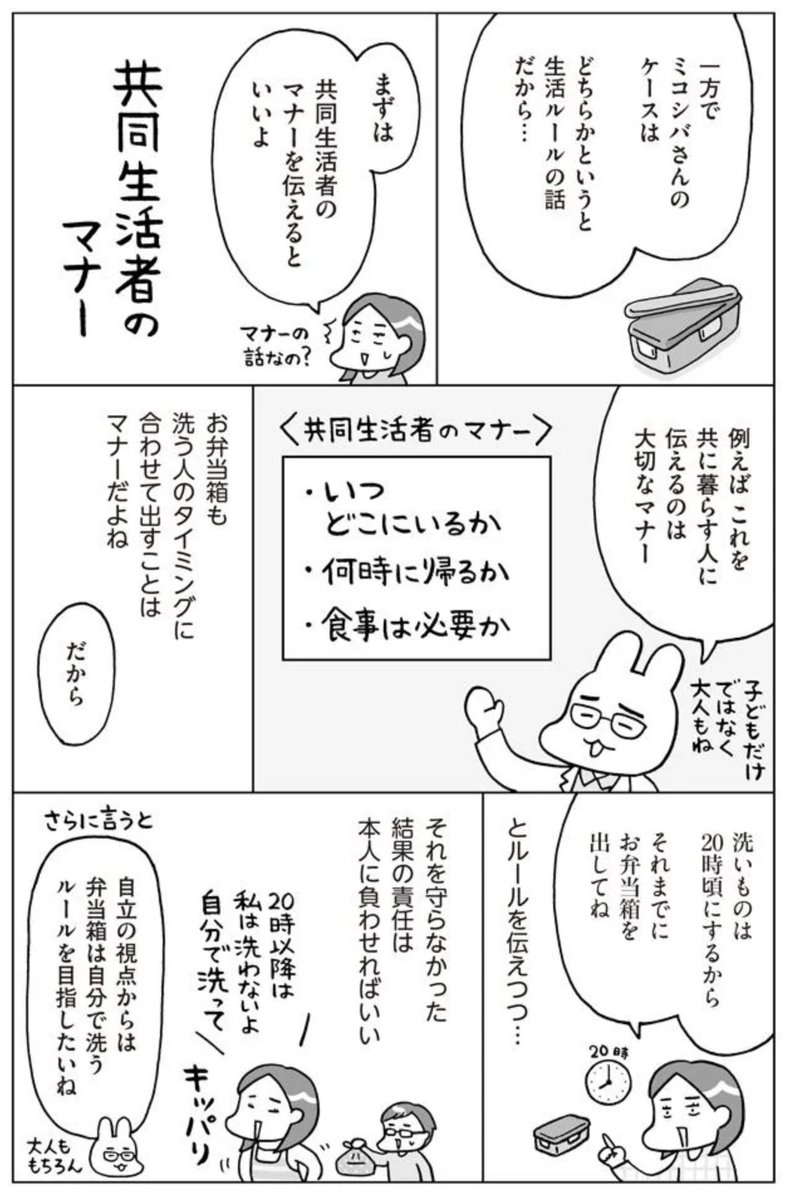 一方で
ミコシバさんの
ケースは
どちらかというと
生活ルールの話
だから…
まずは
共同生活者の
マナーを伝えると
いいよ
マナーの
話なの?
共同生活者の
マナー
例えば これを
共に暮らす人に
伝えるのは
大切なマナー
〈共同生活者のマナー〉
・いつ
どこにいるか
・何時に帰るか
・食事は必要か
子どもだけ
ではなく
大人もね
お弁当箱も
洗う人のタイミングに
合わせて出すことは
マナーだよね
だから
洗いものは
20時頃にするから
それまでに
お弁当箱を
出してね
20時
とルールを伝えつつ…
それを守らなかった
結果の責任は
本人に負わせればいい
20時以降は
私は洗わないよ
自分で洗って
キッパリ
さらに言うと
自立の視点からは
弁当箱は自分で洗う
ルールを目指したいね
大人も
もちろん